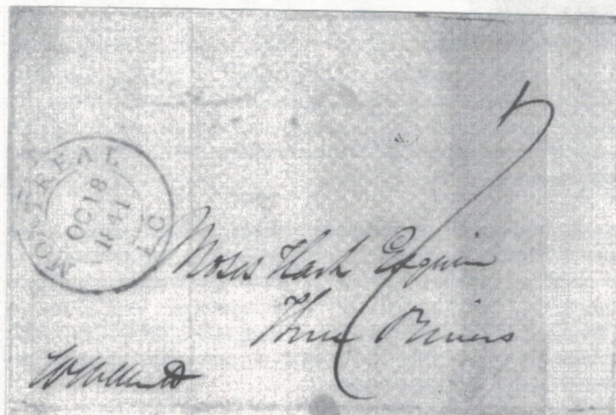 MONTREAL L.C.
OC 18
1841
7
Moses Hart Esquire
Three Rivers